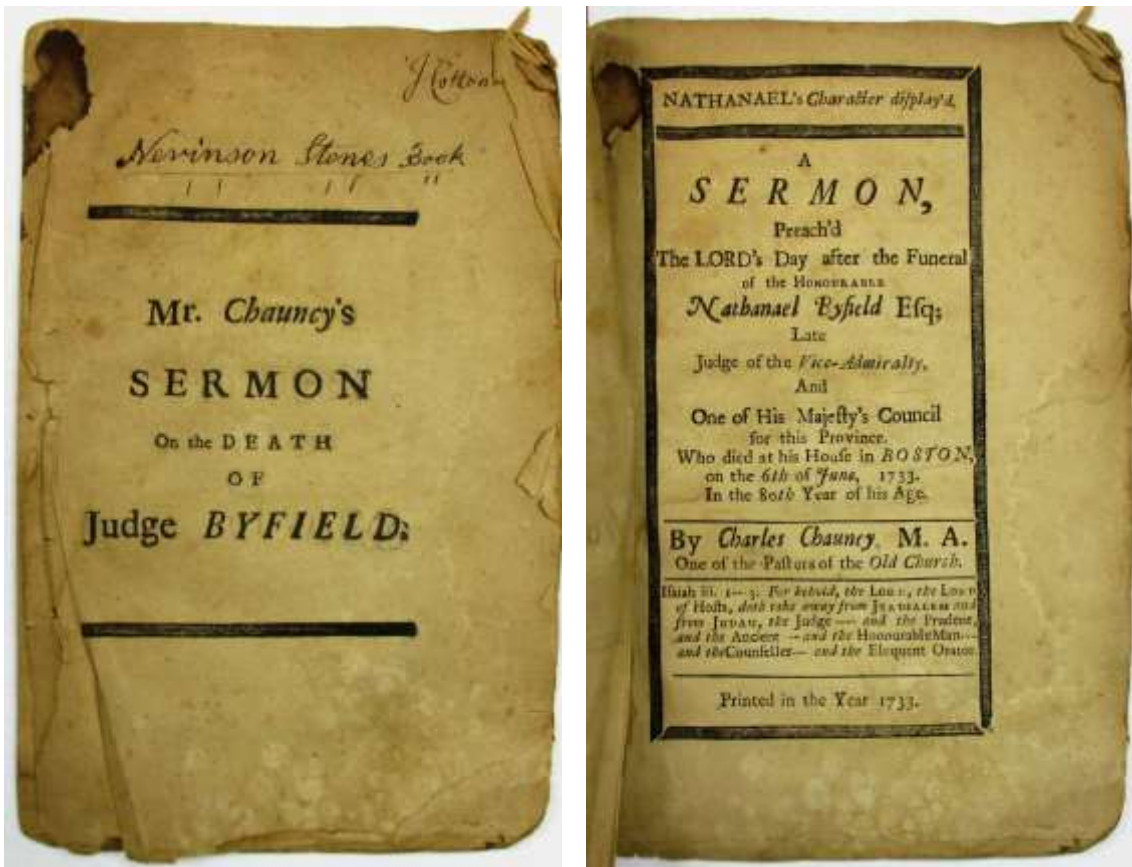 J Cotton
Nevinson Stones Book
Mr. Chauncy's
SERMON
On the DEATH
OF
Judge BYFIELD:
NATHANAEL's Character diſplay'd.
A
SERMON,
Preach'd
The LORD's Day after the Funeral
of the HONOURABLE
Nathanael Byfield Eſq;
Late
Judge of the Vice-Admiralty,
And
One of His Majeſty's Council
for this Province.
Who died at his Houſe in BOSTON,
on the 6th of June, 1733.
In the 80th Year of his Age.
By Charles Chauncy, M. A.
One of the Paſtors of the Old Church.
Iſaiah iii. 1--3. For behold, the LORD, the LORD
of Hoſts, doth take away from JERUSALEM and
from JUDAH, the Judge — and the Prudent,
and the Ancient — and the Honourable Man—
and the Counſeller— and the Eloquent Orator.
Printed in the Year 1733.